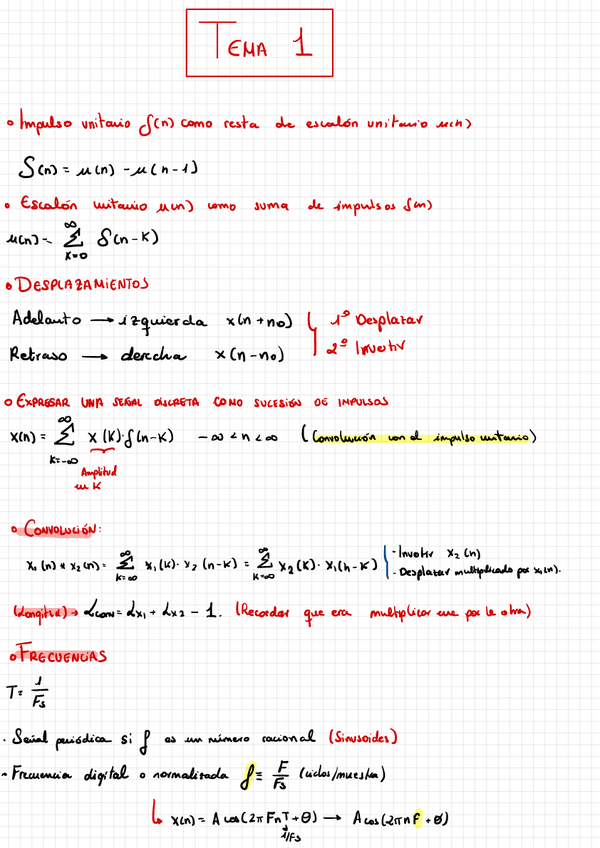 TEMA 1
• Impulso unitario δ(n) como resta de escalón unitario u(n)
δ(n) = u(n) - u(n-1)
• Escalón unitario u(n) como suma de impulsos δ(n)
u(n) = ∑_{K=0}^{∞} δ(n-K)
• DESPLAZAMIENTOS
Adelanto → izquierda x(n+n0) 1º Desplazar
Retraso → derecha x(n-n0) 2º Invertir
• EXPRESAR UNA SEÑAL DISCRETA COMO SUCESIÓN DE IMPULSOS
x(n) = ∑_{K=-∞}^{∞} x(K)·δ(n-K) -∞ < n < ∞ (Convolución con el impulso unitario)
Amplitud
en K
• CONVOLUCIÓN:
x1(n) * x2(n) = ∑_{K=∞}^{∞} x1(K)·x2(n-K) = ∑_{K=∞}^{∞} x2(K)·x1(n-K) - Invertir x2(n)
- Desplazar multiplicado por x1(n).
(Longitud) → Lconv = Lx1 + Lx2 - 1. (Recordar que era multiplicar una por la otra)
• FRECUENCIAS
T = 1/Fs
· Señal periódica si f es un número racional (Sinusoides)
- Frecuencia digital o normalizada f = F/Fs (ciclos/muestra)
↳ x(n) = A cos(2π F n T + θ) → A cos(2π n f + θ)
1/Fs